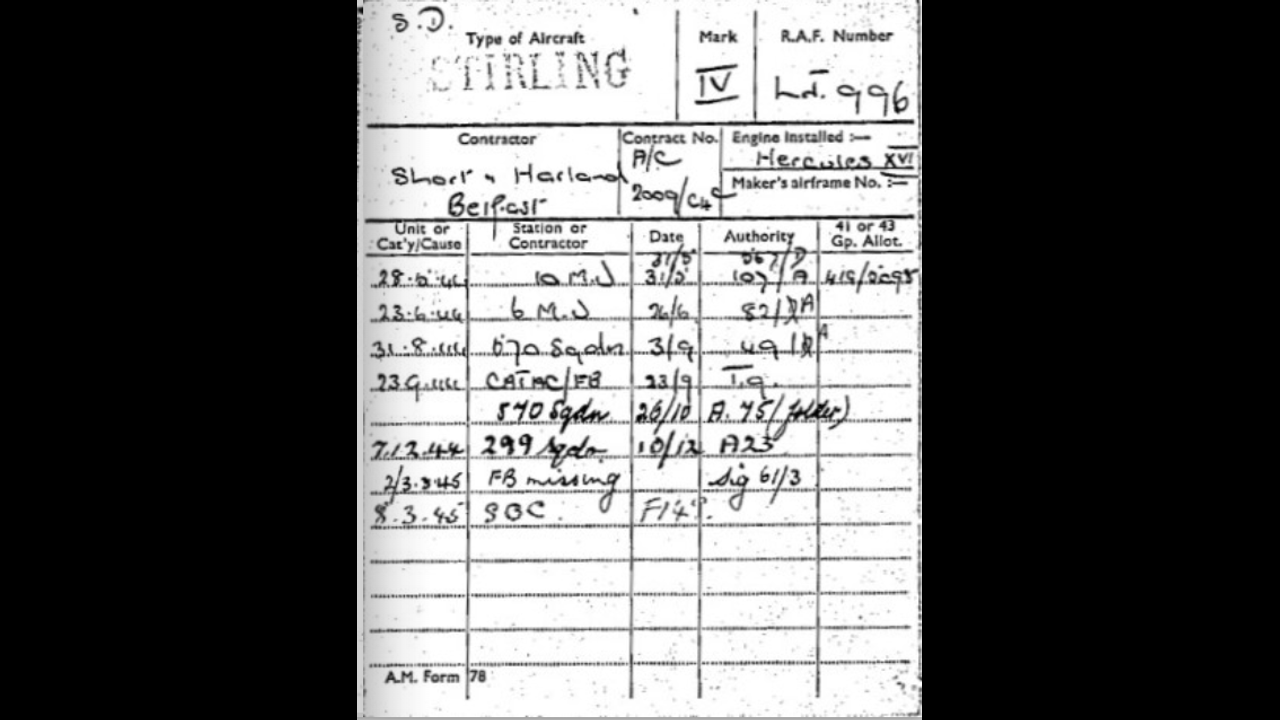 S.D.
Type of Aircraft Mark R.A.F. Number
STIRLING IV LJ. 996
Contractor Contract No. Engine Installed :—
A/C Hercules XVI
Short & Harland Maker's airframe No. :—
Belfast 2009/C4
Unit or Cat'y/Cause Station or Contractor Date Authority 41 or 43 Gp. Allot.
28.5.44 10 M.U 31/5 107/A
23.6.44 6 M.U 26/6 82/A
31.8.44 570 Sqdn 3/9 49/A
23.9.44 CATAC/FB 23/9
570 Sqdn 26/10 A.75 (folder)
7.12.44 299 Sqdn. 10/12 A23
2/3.3.45 FB missing Sig 61/3
8.3.45 SOC. F14
A.M. Form 78